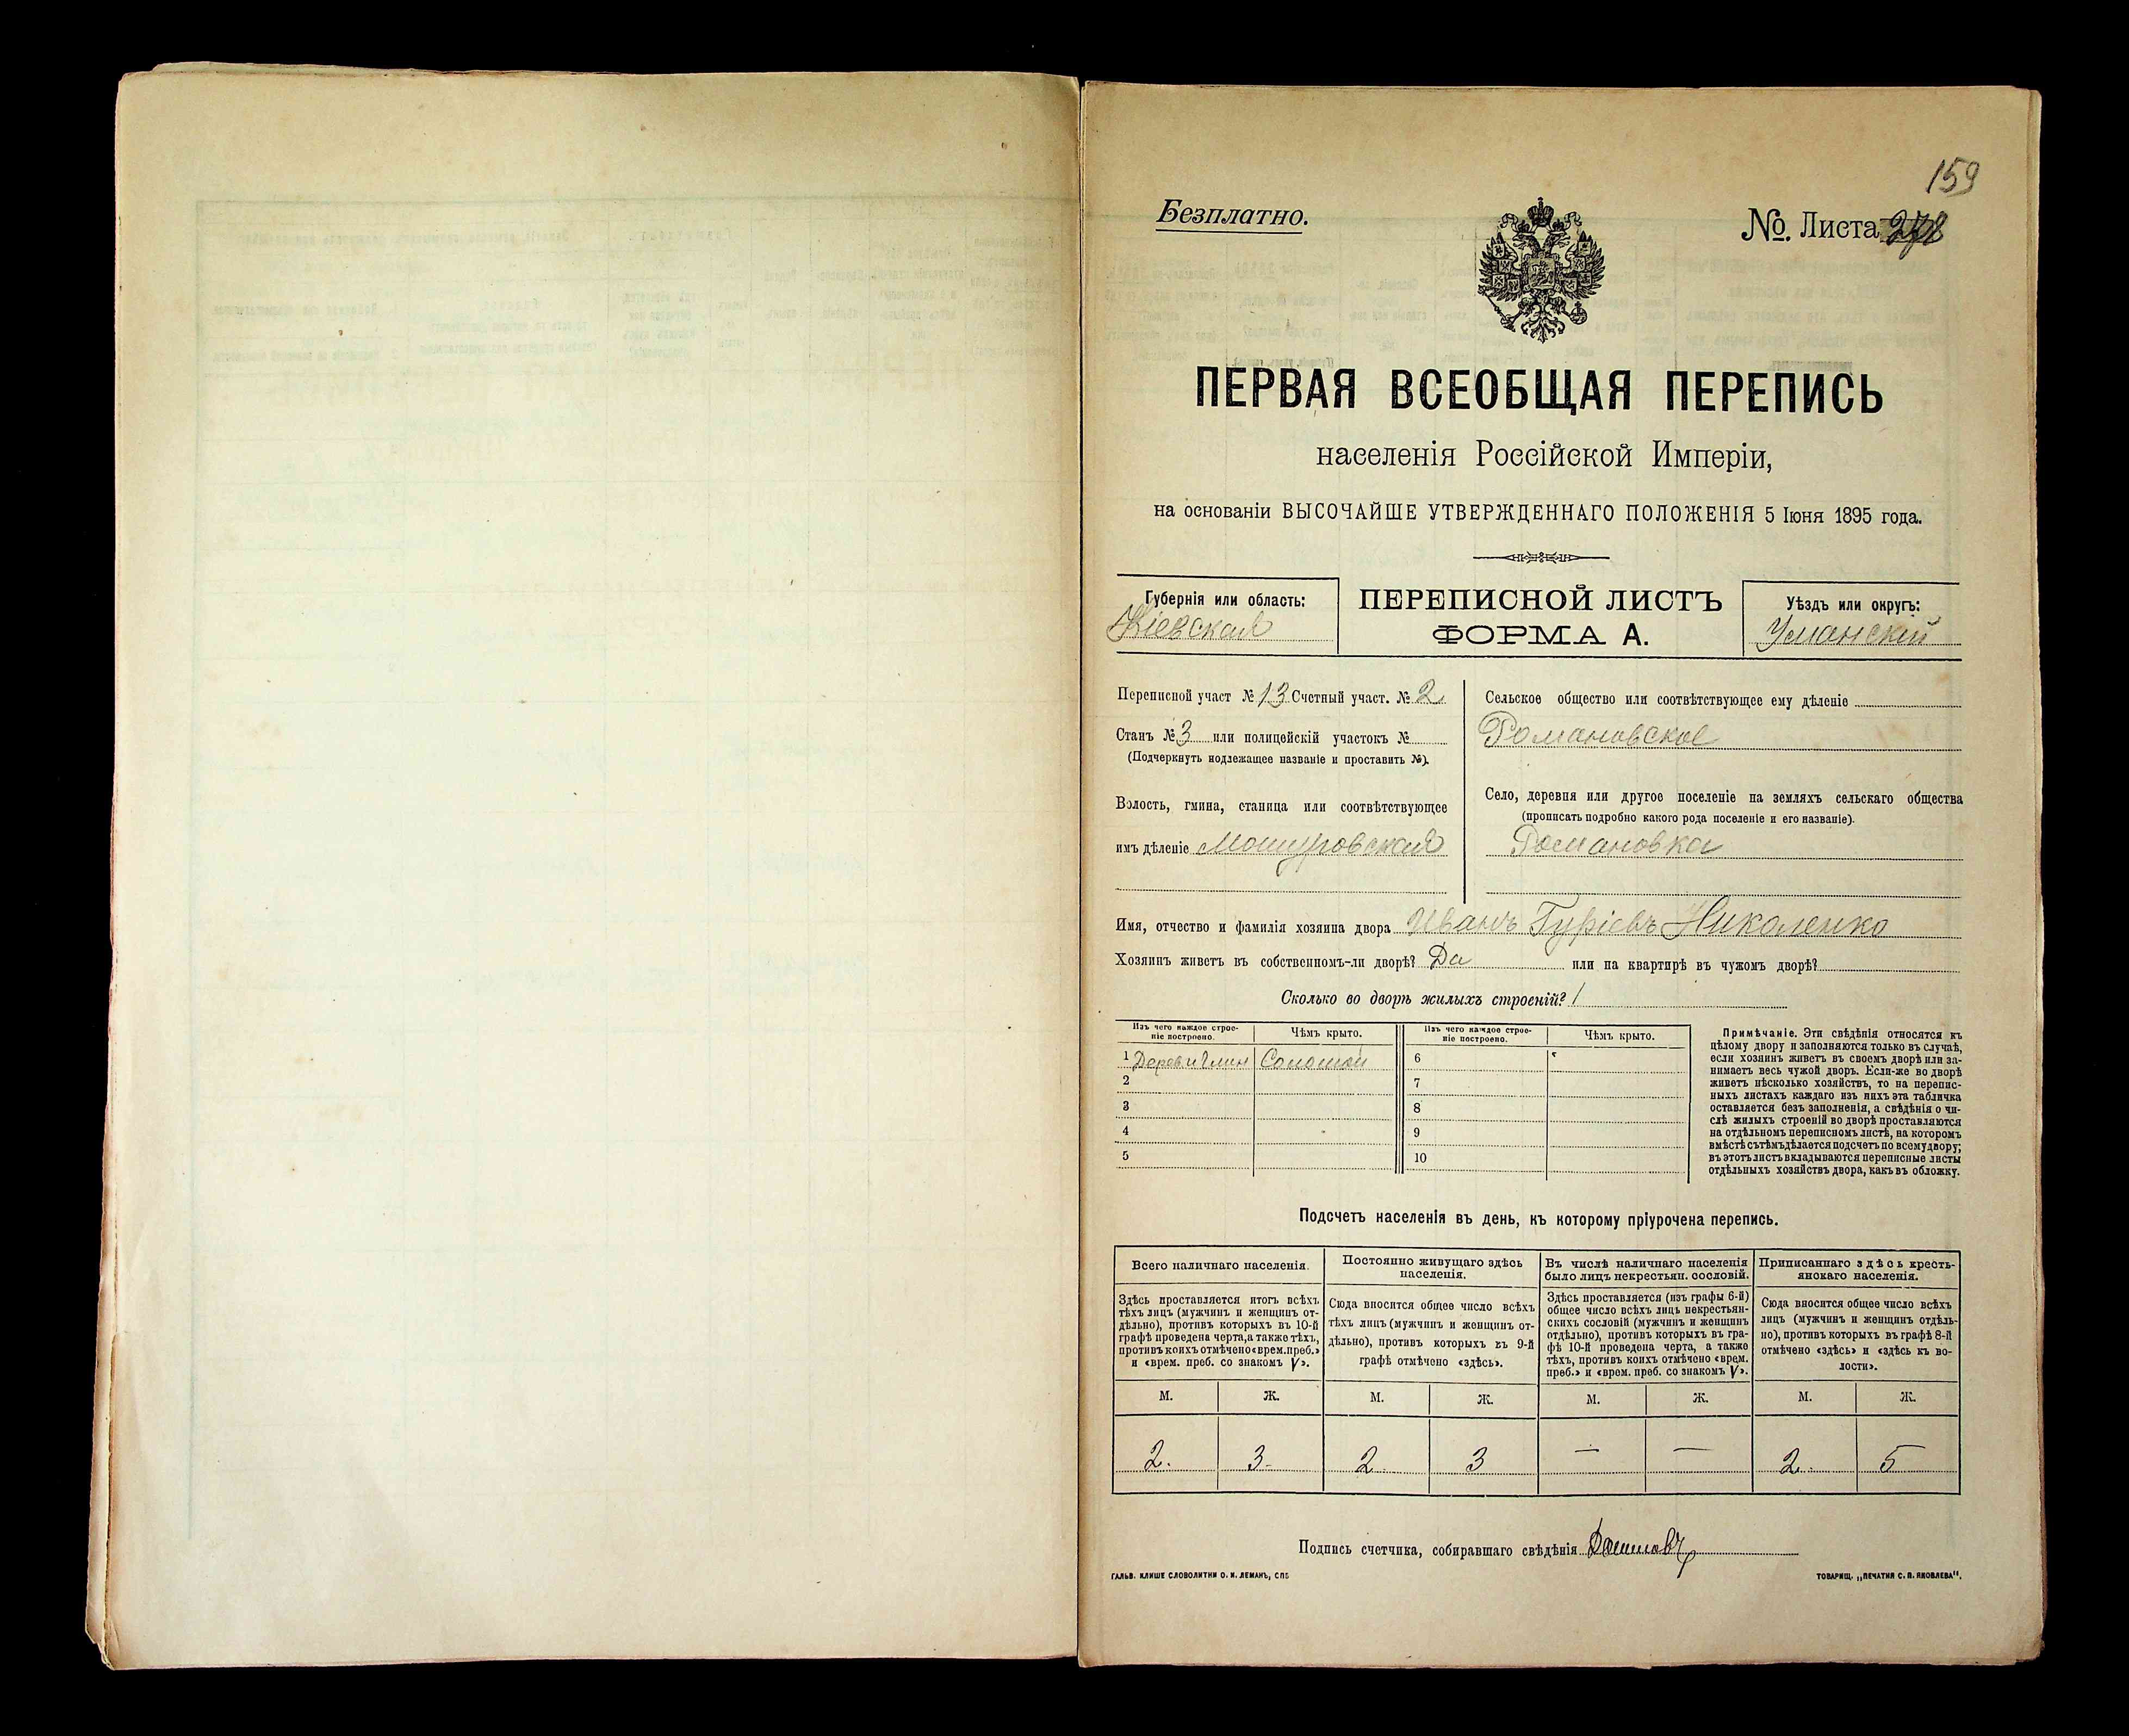 159
Безплатно.
№. Листа 278
ПЕРВАЯ ВСЕОБЩАЯ ПЕРЕПИСЬ
населенія Россійской Имперіи,
на основаніи ВЫСОЧАЙШЕ УТВЕРЖДЕННАГО ПОЛОЖЕНІЯ 5 Іюня 1895 года.
Губернія или область:
Кіевская
ПЕРЕПИСНОЙ ЛИСТЪ
ФОРМА А.
Уѣздъ или округъ:
Уманскій
Переписной участ № 13 Счетный участ. № 2
Станъ № 3 или полицейскій участокъ №
(Подчеркнуть подлежащее названіе и проставить №).
Волость, гмина, станица или соотвѣтствующее
имъ дѣленіе Мошуровская
Сельское общество или соотвѣтствующее ему дѣленіе
Романовское
Село, деревня или другое поселеніе на земляхъ сельскаго общества
(прописать подробно какого рода поселеніе и его названіе).
Романовка
Имя, отчество и фамилія хозяина двора Иванъ Гуріевъ Николенко
Хозяинъ живетъ въ собственномъ-ли дворѣ? Да или на квартирѣ въ чужомъ дворѣ?
Сколько во дворѣ жилыхъ строеній? 1
Изъ чего каждое строе-
ніе построено.
Чѣмъ крыто.
Изъ чего каждое строе-
ніе построено.
Чѣмъ крыто.
1 Дерев и Глин Соломой
2
3
4
5
6
7
8
9
10
Примѣчаніе. Эти свѣдѣнія относятся къ
цѣлому двору и заполняются только въ случаѣ,
если хозяинъ живетъ въ своемъ дворѣ или за-
нимаетъ весь чужой дворъ. Если-же во дворѣ
живетъ нѣсколько хозяйствъ, то на перепис-
ныхъ листахъ каждаго изъ нихъ эта табличка
оставляется безъ заполненія, а свѣдѣнія о чи-
слѣ жилыхъ строеній во дворѣ проставляются
на отдѣльномъ переписномъ листѣ, на которомъ
вмѣстѣ съ тѣмъ дѣлается подсчетъ по всему двору;
въ этотъ листъ вкладываются переписные листы
отдѣльныхъ хозяйствъ двора, какъ въ обложку.
Подсчетъ населенія въ день, къ которому пріурочена перепись.
Всего наличнаго населенія.
Здѣсь проставляется итогъ всѣхъ
тѣхъ лицъ (мужчинъ и женщинъ от-
дѣльно), противъ которыхъ въ 10-й
графѣ проведена черта, а также тѣхъ,
противъ коихъ отмѣчено «врем. преб.»
и «врем. преб. со знакомъ V».
Постоянно живущаго здѣсь
населенія.
Сюда вносится общее число всѣхъ
тѣхъ лицъ (мужчинъ и женщинъ от-
дѣльно), противъ которыхъ въ 9-й
графѣ отмѣчено «здѣсь».
Въ числѣ наличнаго населенія
было лицъ некрестьян. сословій.
Здѣсь проставляется (изъ графы 6-й)
общее число всѣхъ лицъ некрестьян-
скихъ сословій (мужчинъ и женщинъ
отдѣльно), противъ которыхъ въ гра-
фѣ 10-й проведена черта, а также
тѣхъ, противъ коихъ отмѣчено «врем.
преб.» и «врем. преб. со знакомъ V».
Приписаннаго здѣсь кресть-
янскаго населенія.
Сюда вносится общее число всѣхъ
лицъ (мужчинъ и женщинъ отдѣль-
но), противъ которыхъ въ графѣ 8-й
отмѣчено «здѣсь» и «здѣсь къ во-
лости».
М. Ж. М. Ж. М. Ж. М. Ж.
2. 3- 2 3 — — 2 5
Подпись счетчика, собиравшаго свѣдѣнія
ГАЛЬВ. КЛИШЕ СЛОВОЛИТНИ О. И. ЛЕМАНЪ, СПБ
ТОВАРИЩ. „ПЕЧАТНЯ С. П. ЯКОВЛЕВА".